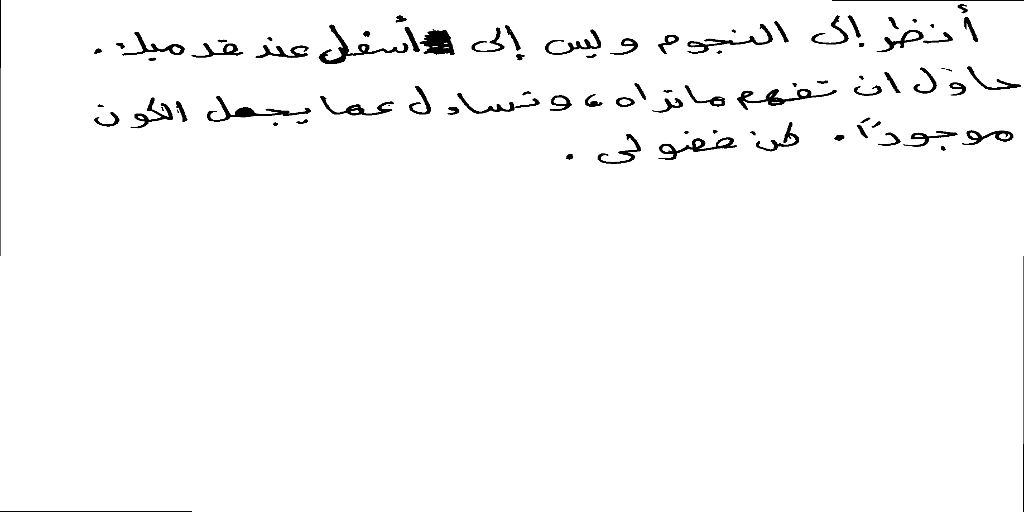 أنظر إلى النجوم وليس إلى أسفل عند قدميك.
حاول ان تفهم ماتراه، وتساءل عما يجعل الكون
موجودًا. كن فضولى.